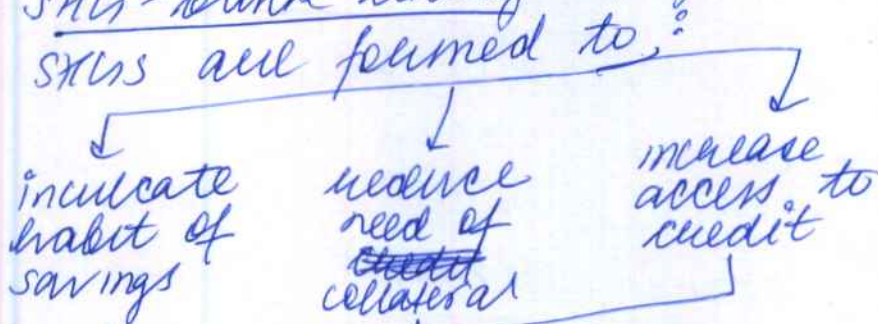 SHGs are formed to:
inculcate habit of savings
reduce need of collateral
increase access to credit